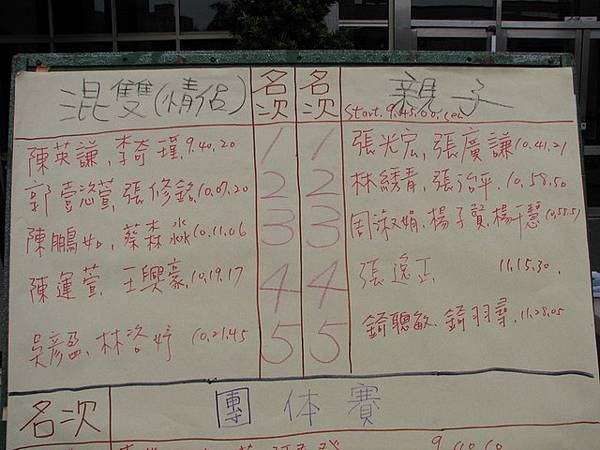 混雙(情侶) 名次 名次 親子
Start. 9.45.00.
陳英謙、李奇瑾 9.40.20 1 1 張光宏、張慶謙 10.41.21
郭壹恣萱、張修銘 10.07.20 2 2 林綉青、張治平 10.58.50
陳鵬如、蔡森淼 10.11.06 3 3 周淑娟、楊子賢、楊千慧 10.58.51
陳運萱、王興豪 10.19.17 4 4 張逸正 11.15.30.
吳彥盈、林咨婷 10.21.45 5 5 錡聰敏、錡羽尋 11.28.05
名次 團体賽